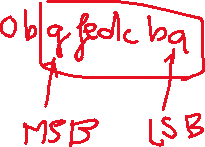 0b gfedcba
MSB LSB